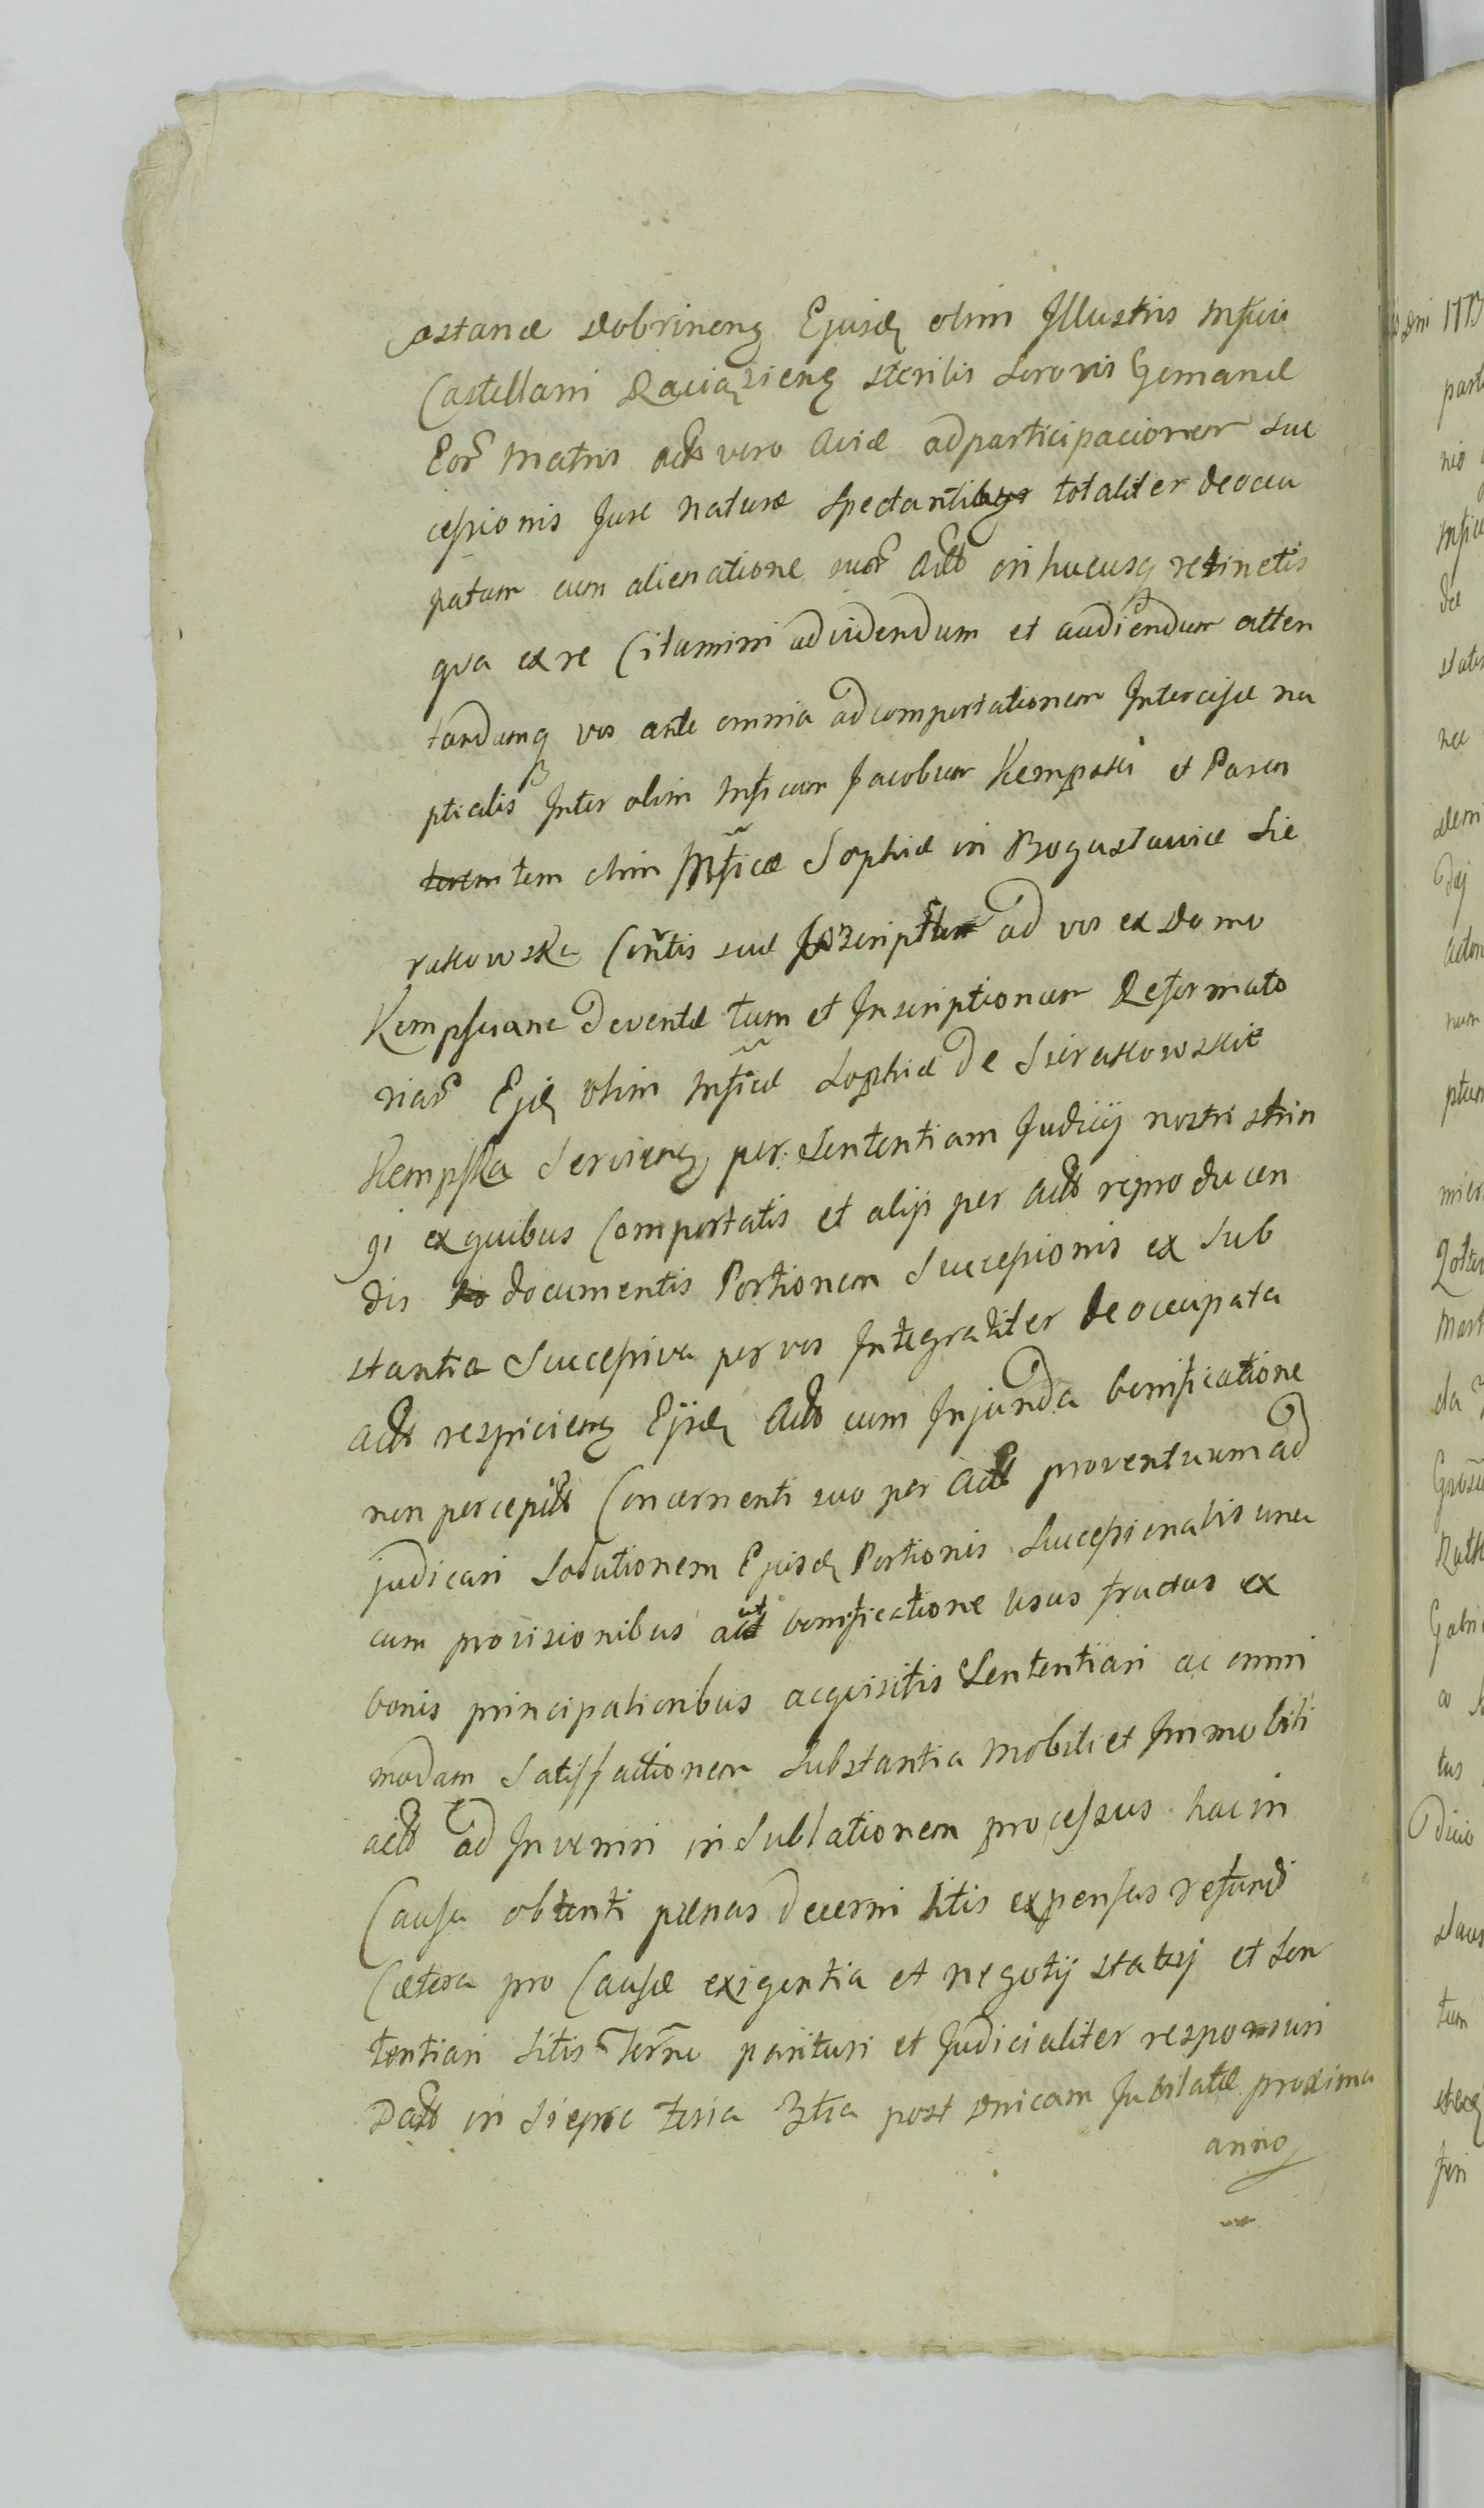 Castanae Dobrinenq Ejusd olim Illustris Mfici
Castellani Raciążienq sterilis Sororis Gemanae
Eor Matris Actt vero Aviae ad participacionem Suc
cessionis Jure Naturae Spectantibus totaliter deoccu
patam cum alienatione suor Actt in hucusq retinetis
qva ex re Citamini ad videndum et audiendum atten
tandumq vos ante omnia ad comportationem Intercisae nu
ptialis Inter olim Mficum Jacobum Kempski et Paren
tem olim Mficae Sophiae in Bogusławice Sie
rakowska Contis suae ad vos ex Domo
Kempsciana deventae tum et Inscriptionum Reformato
riar Ejsd olim Mficae Sophiae de Sierakowskie
Kempska Servienq per Sententiam Judicij nostri strin
gi ex quibus Comportatis et alijs per Actt reproducen
dis documentis Portionem Successionis ex Sub
stantia Successiva per vos Integraliter deoccupata
Actt respicienq Ejsd Actt cum Injunda bonificatione
non percepitt Concernenti suo per Actt proventuum ad
judicari Solutionem Ejusd Portionis Successionalis una
cum provisionibus aut bonificatione Usus fructus ex
bonis principalioribus acqvisitis Sententiari ac omni
modam Satisfactionem Substantia Mobili et Immobili
Actt ad Inveniri in Sublationem processus hac in
Causa obtenti paenas decerni litis expensas refundi
Caetera pro Causae exigentia et negotij statuj et Sen
tentiari Sitis Terne parituri et Judicialiter responsuri
Datt in Sieprc feria 3tia post Dnicam Jubilatae proxima
anno
Dni 1773
part
nio
Mfico
dae
statis
nae
Dem
Dej
Acton
num
ptam
Mart
da
Gabri
tus
tum
feri